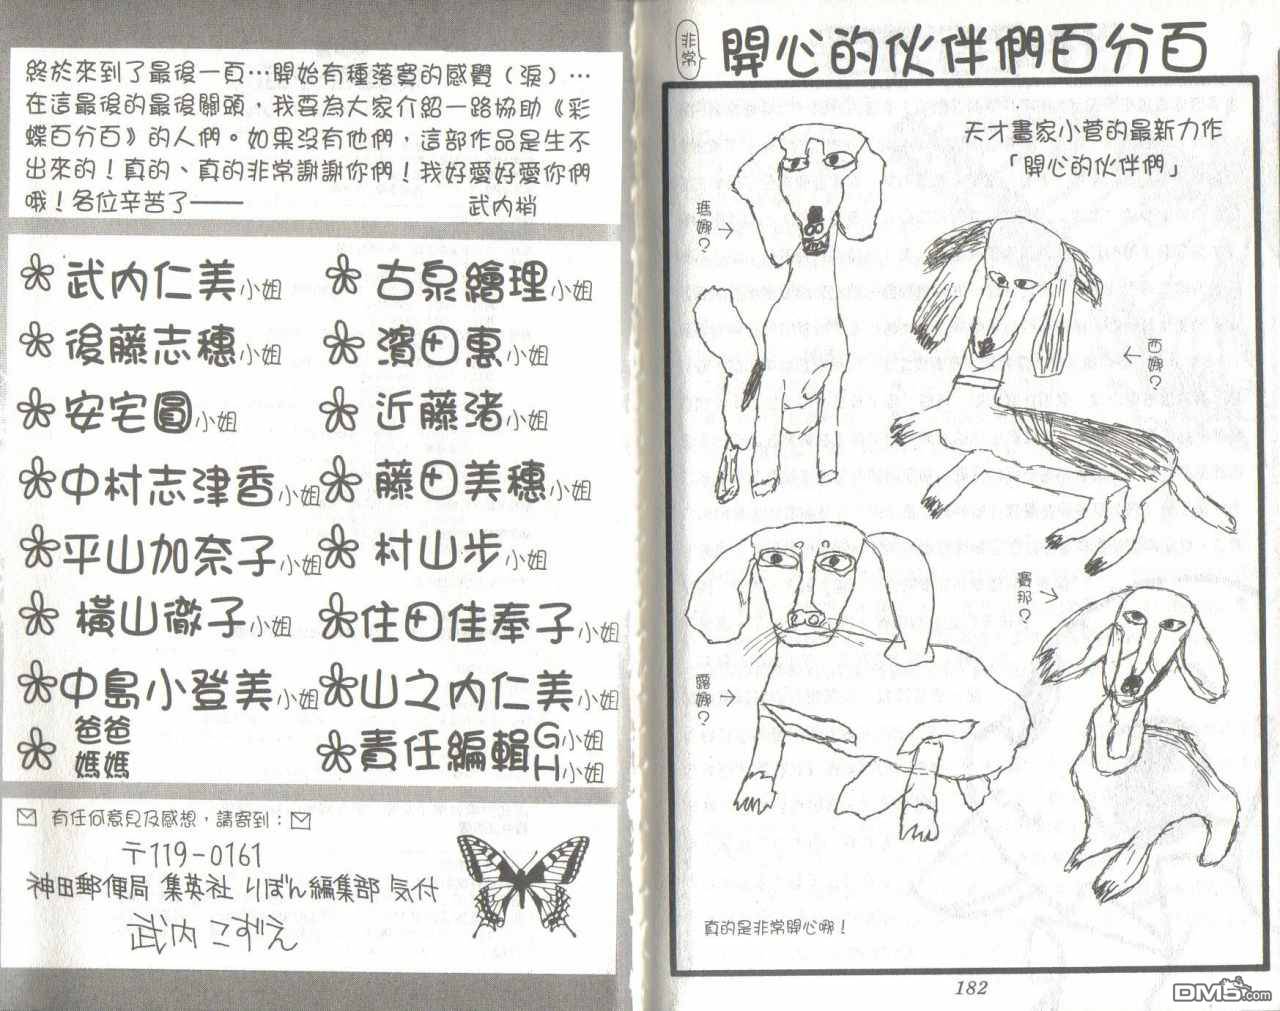 非常
開心的伙伴們百分百
天才畫家小菅的最新力作
「開心的伙伴們」
瑪娜？
西娜？
露娜？
賽那？
真的是非常開心哪！
182
終於來到了最後一頁…開始有種落寞的感覺（淚）…
在這最後的最後關頭，我要為大家介紹一路協助《彩
蝶百分百》的人們。如果沒有他們，這部作品是生不
出來的！真的、真的非常謝謝你們！我好愛好愛你們
哦！各位辛苦了——
武內梢
武內仁美小姐
古泉繪理小姐
後藤志穗小姐
濱田惠小姐
安宅圓小姐
近藤渚小姐
中村志津香小姐
藤田美穗小姐
平山加奈子小姐
村山步小姐
橫山徹子小姐
住田佳奉子小姐
中島小登美小姐
山之內仁美小姐
爸爸
媽媽
責任編輯G小姐
H小姐
有任何意見及感想，請寄到：
〒119-0161
神田郵便局 集英社 りぼん編集部 気付
武内 こずえ
DM5.com